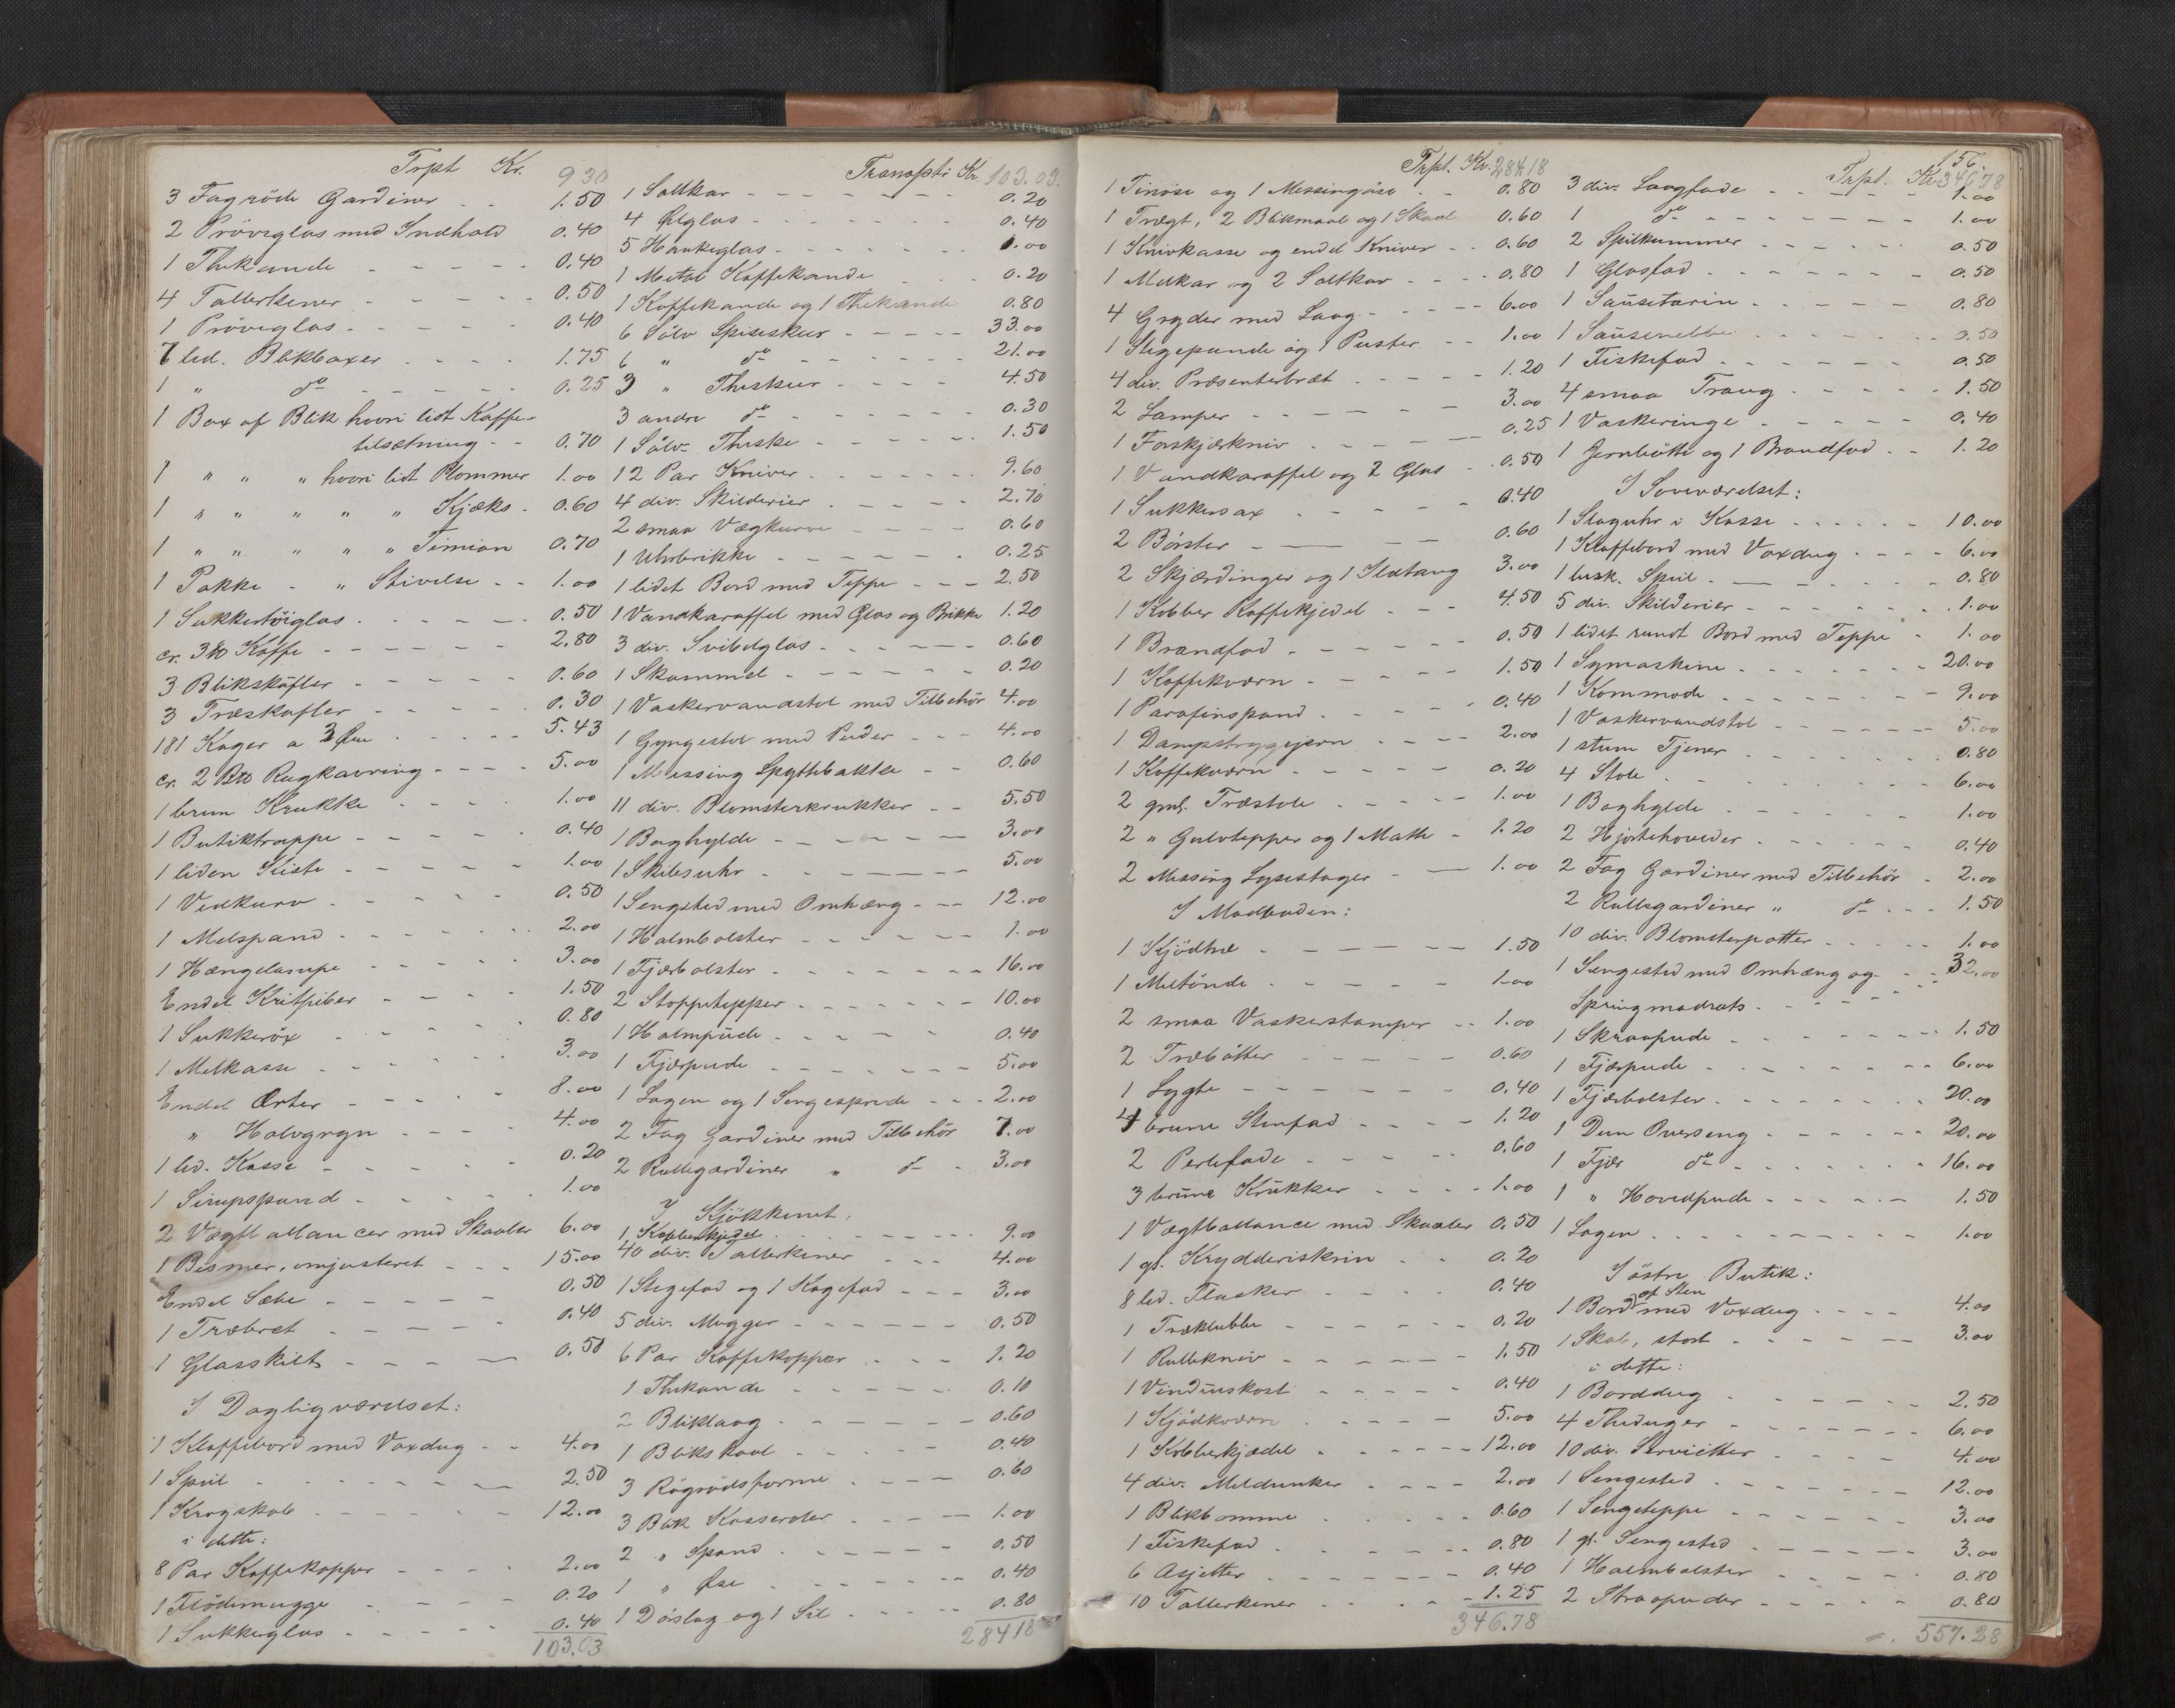 Trpt Kr. 9 30
3 Fag röde Gardiner . . 1.50
2 Pröveglas med Indhold 0.40
1 Thekande - - - - - 0.40
4 Tallerkener - - - - - 0.50
1 Pröveglas - - - - - 0.40
7 led. Blikboxer . - - - 1.75
1 " do - - - - - 0.25
1 Box af Blik hvori lidt Kaffe-
tilsætning - - 0.70
1 " " " hvori lidt Blommer 1.00
1 " " " " " Kjæks - 0.60
1 " " " " " Timian 0.70
1 Pakke - " Stivelse - - 1.00
1 Sukkertöiglas - - - - - 0.50
cr. 3 ℔ Kaffe - - - - - - 2.80
3 Blikskåfler - - - - - 0.60
3 Træskafler - - - - - 0.30
181 Kager a 3 Øre - - - - - 5.43
cr. 2 Btt Rugkavring - - - - 5.00
1 brun Krukke - - - - 1.00
1 Butiktrappe - - - - - 0.40
1 liden Kiste - - - - - 1.00
1 Vedkurv - - - - - 0.50
1 Melspand - - - - - - 2.00
1 Hængelampe - - - - - 3.00
Endel Kritpiber - - - - 1.50
1 Sukkeröx - - - - - 0.80
1 Melkasse - - - - - 3.00
Endel Erter - - - - - 8.00
" Havregryn - - - - 4.00
1 led. Kasse - - - - - - 0.20
1 Sirupspand - - - - - 1.00
2 Vægtballancer med Skaaler 6.00
1 Bismer, omjusteret - - - 15.00
Endel Sæbe - - - - - 0.50
1 Træbret - - - - - 0.40
1 Glasskilt - - - - 0.50
I Dagligværelset:
1 Klaffebord med Voxdug - - 4.00
1 Speil - - - - - - - 2.50
1 Krogskab - - - - - - 12.00
i dette:
8 Par Kaffekopper - - - - 2.00
1 Flödemugge - - - - - 0.20
1 Sukkerglas - - - - - 0.40
103.03
Transpt: Kr. 103.03.
1 Saltkar - - - - - - - 0.20
4 Ølglas - - - - - - - 0.40
5 Hankeglas - - - - - - 1.00
1 Metal Kaffekande 0.20
1 Kaffekande og 1 Thekande 0.80
6 Sölv Spiseskeer - - - - - 33.00
6 " do - - - - - - 21.00
3 " Theskeer - - - - 4.50
3 andre do - - - - - - 0.30
1 Sölv Theske - - - - - - 1.50
12 Par Kniver - - - - - 9.60
4 div. Skilderier - - - - - 2.70
2 smaa Vægkurve - - - - 0.60
1 Uhrbrikke - - - - - - 0.25
1 lidet Bord med Teppe - - - 2.50
1 Vandkaraffel med Glas og Brikke 1.20
3 div. Svibelglas - - - - - - 0.60
1 Skammel - - - - - - 0.20
1 Vaskevandstol med Tilbehör 4.00
1 Gyngestol med Puder - - - 4.00
1 Messing Spyttebakke - - 0.60
11 div. Blomsterkrukker - - 5.50
1 Boghylde - - - - - - 3.00
1 Skibsuhr - - - - - - - 5.00
1 Sengsted med Omhæng - - - 12.00
1 Halmbolster - - - - - - 1.00
1 Fjærbolster - - - - - - - 16.00
2 Stoppetepper - - - - - - 10.00
1 Halmpude - - - - 0.40
1 Fjærpude - - - - - - - 5.00
1 Lagen og 1 Sengespride - - - 2.00
2 Fag Gardiner med Tilbehör 7.00
2 Rullegardiner " do - 3.00
I Kjökkenet:
1 Kobberkjedel - - - - - - 9.00
40 div. Tallerkener - - - 4.00
1 Stegefad og 1 Kagefad - - - 3.00
5 div. Mugger - - - - - - 0.50
6 Par Kaffekopper - - - - 1.20
1 Thekande - - - - - - 0.10
2 Bliklaag - - - - - - - 0.60
1 Blikskaal - - - - - 0.40
3 Rögrödsforme - - - - 0.60
3 Blik Kasseroler - - - - 1.00
2 " Spand - - - - - - 0.50
1 " Øse - - - - - - - 0.40
1 Dörslag og 1 Sil - - - - 0.80
284 18
Trpt. Kr. 284 18
1 Tinöse og 1 Messingöse - - 0.80
1 Trægt, 2 Blikmaal og 1 Skaal 0.60
1 Knivkasse og endel Kniver - - 0.60
1 Melkar og 2 Saltkar - - - - 0.80
4 Gryder med Laag - - - - - 6.00
1 Stegepande og 1 Puster - - 1.00
4 div. Præsenterbræt - - - - - 1.20
2 Lamper - - - - - - - 3.00
1 Forskjærkniv - - - - - 0.25
1 Vandkaraffel og 2 Glas - - 0.50
1 Sukkersax - - - - - - 0.40
2 Börster - - - - 0.60
2 Skjærdinger og 1 Ildtang 3.00
1 Kobber Kaffekjedel - - - 4.50
1 Brandfad - - - - - - 0.50
1 Kaffekværn - - - - - 1.50
1 Parafinspand - - - - - 0.40
1 Dampstrygejern - - - - 2.00
1 Kaffekværn - - - - - 0.20
2 gml. Træstole - - - - - 1.00
2 " Gulvtepper og 1 Matte - 1.20
2 Messing Lysestager - - 1.00
I Madboden:
1 Kjödtræ - - - - - - 1.50
1 Meltönde - - - - - - 1.00
2 smaa Vaskerstamper - - 1.00
2 Træbötter - - - - - 0.60
1 Lygte - - - - - - - 0.40
4 brune Stenfad - - - - - 1.20
2 Perlefade - - - - - 0.60
3 brune Krukker - - - - 1.00
1 Vægtballance med Skaaler 0.50
1 gl. Krydderiskrin - - 0.20
8 led. Flasker - - - - 0.40
1 Træklubbe - - - - - - 0.20
1 Rullekniv - - - - - - 1.50
1 Vinduskost - - - - - 0.40
1 Kjödkværn - - - - - 5.00
1 Kobberkjædel - - - - - - 12.00
4 div. Meldunker - - - - 2.00
1 Blikbomme - - - - - 0.60
1 Fiskefad - - - - - - 0.80
6 Asjetter - - - - - - - 0.40
10 Tallerkener - - - - - 1.25
346.78
156.
Trpt. Kr 346 78
3 div. Laagfade - - - - 1.00
1 do - - - - - - - 1.00
2 Spilkummer - - - - - - 0.50
1 Glasfad - - - - - - - 0.50
1 Sausetarin - - - - - 0.80
1 Sausenebbe - - - - - 0.50
1 Fiskefad - - - - - - 0.50
4 smaa Traug - - - - - 1.50
1 Vaskeringe - - - - - 0.40
1 Jernbötte og 1 Brandfad - - 1.20
I Soveværelset:
1 Slaguhr i Kasse - - - - - 10.00
1 Klaffebord med Voxdug - - - - 6.00
1 lusk. Speil - - - - - - 0.80
5 div. Skilderier - - - - - - 1.00
1 lidet rundt Bord med Teppe - 1.00
1 Symaskine - - - - - - - 20.00
1 Kommode - - - - - - - 9.00
1 Vaskevandstol - - - - - - 5.00
1 stum Tjener - - - - - - 0.80
4 Stole - - - - - - 6.00
1 Boghylde - - - - - - 1.00
2 Hjortehoveder - - - - - - 0.40
2 Fag Gardiner med Tilbehör - 2.00
2 Rullegardiner " do - - - 1.50
10 div. Blomsterpotter - - - - - 1.00
1 Sengested med Omhæng og - - - 32.00
Springmadrats - - - - - -
1 Skraapude - - - - - - - 1.50
1 Fjærpude - - - - - - - 6.00
1 Fjærbolster - - - - - - - 20.00
1 Dun Overseng - - - - - - 20.00
1 Fjær do - - - - - - - 16.00
1 " Hovedpude - - - - - 1.50
1 Lagen - - - - - - - - - 1.00
I östre Butik:
af Sten
1 Bord med Voxdug - - - - 4.00
1 Skab, stort - - - - - - 3.00
i dette:
1 Borddug - - - - - - 2.50
4 Theduger - - - - - - - 6.00
10 div. Servietter - - - - - 4.00
1 Sengested - - - - - - - 12.00
1 Sengeteppe - - - - - - 3.00
1 gl. Sengested - - - - - - 3.00
1 Halmbolster - - - - - 0.80
2 Skraapuder - - - - - 0.80
557.28